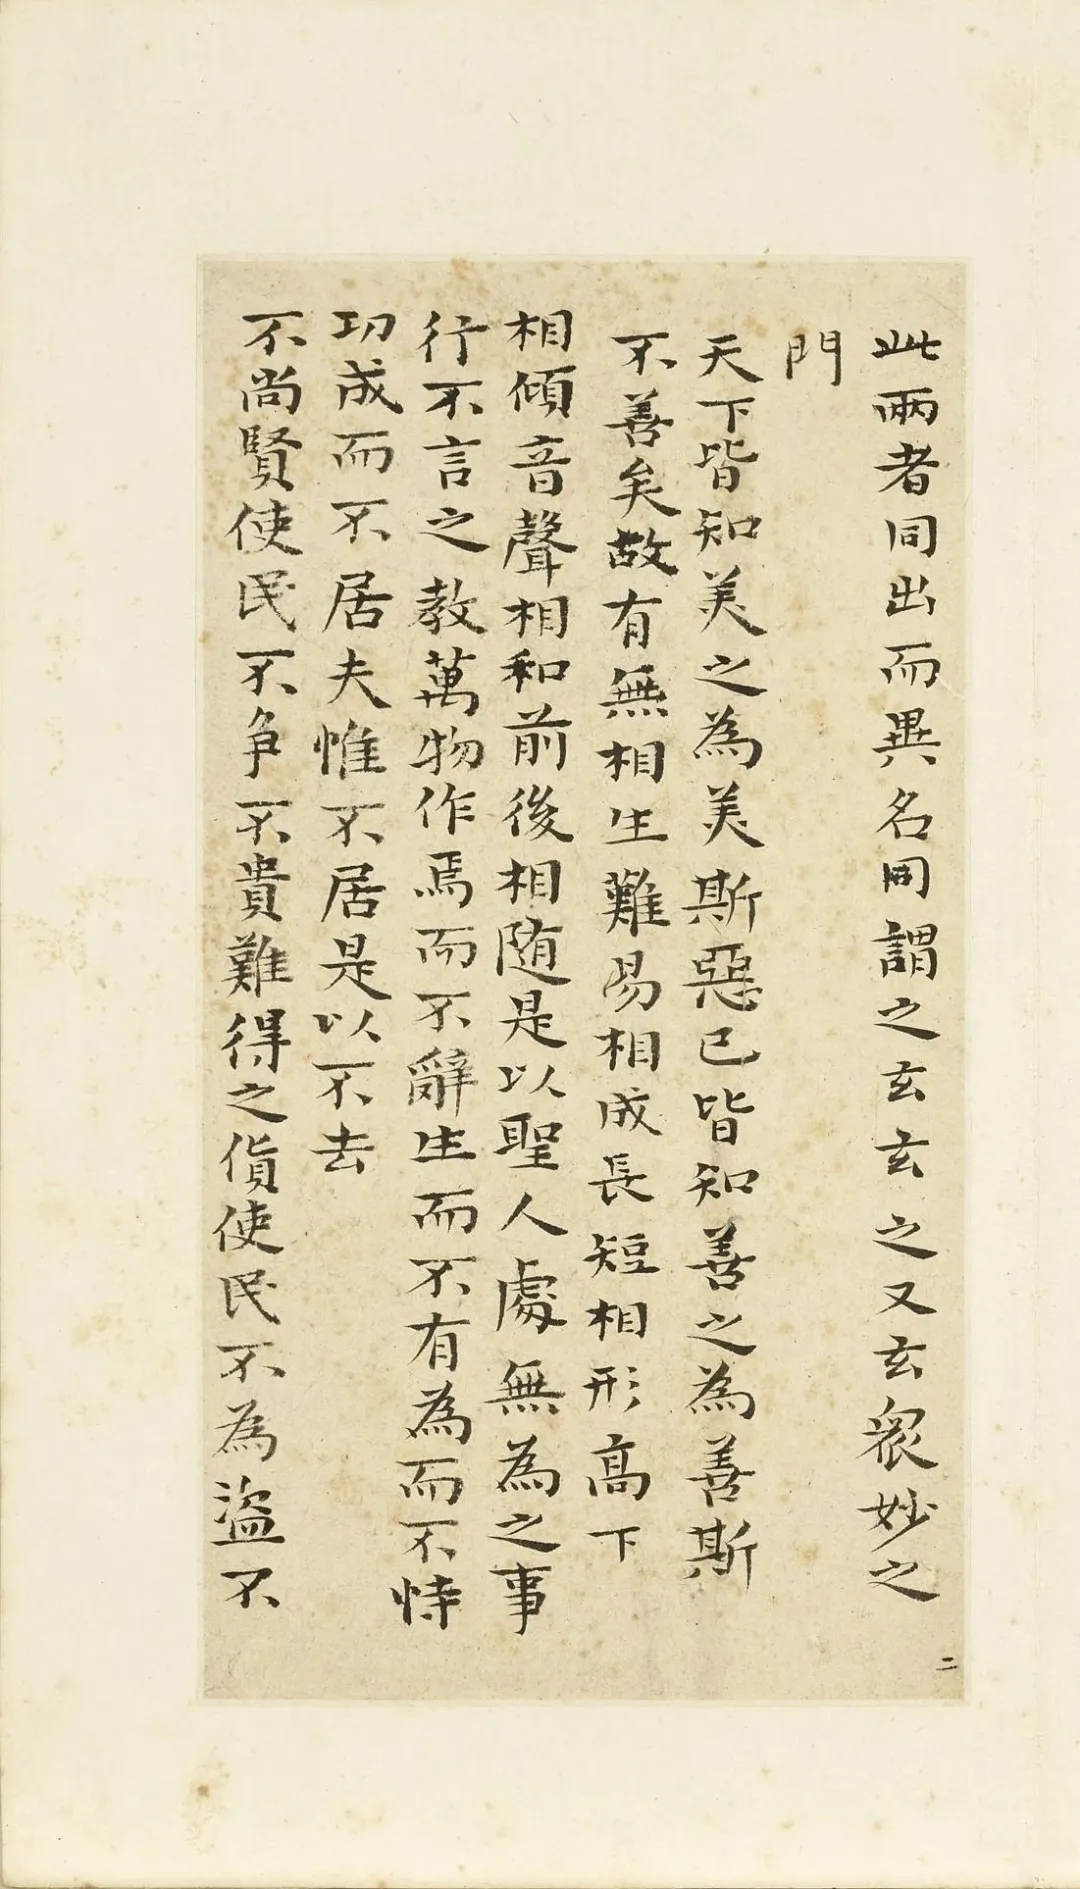 此兩者同出而異名同謂之玄玄之又玄衆妙之
門
天下皆知美之為美斯惡已皆知善之為善斯
不善矣故有無相生難易相成長短相形高下
相傾音聲相和前後相随是以聖人處無為之事
行不言之教萬物作焉而不辭生而不有為而不恃
功成而不居夫惟不居是以不去
不尚賢使民不争不貴難得之貨使民不為盜不
二